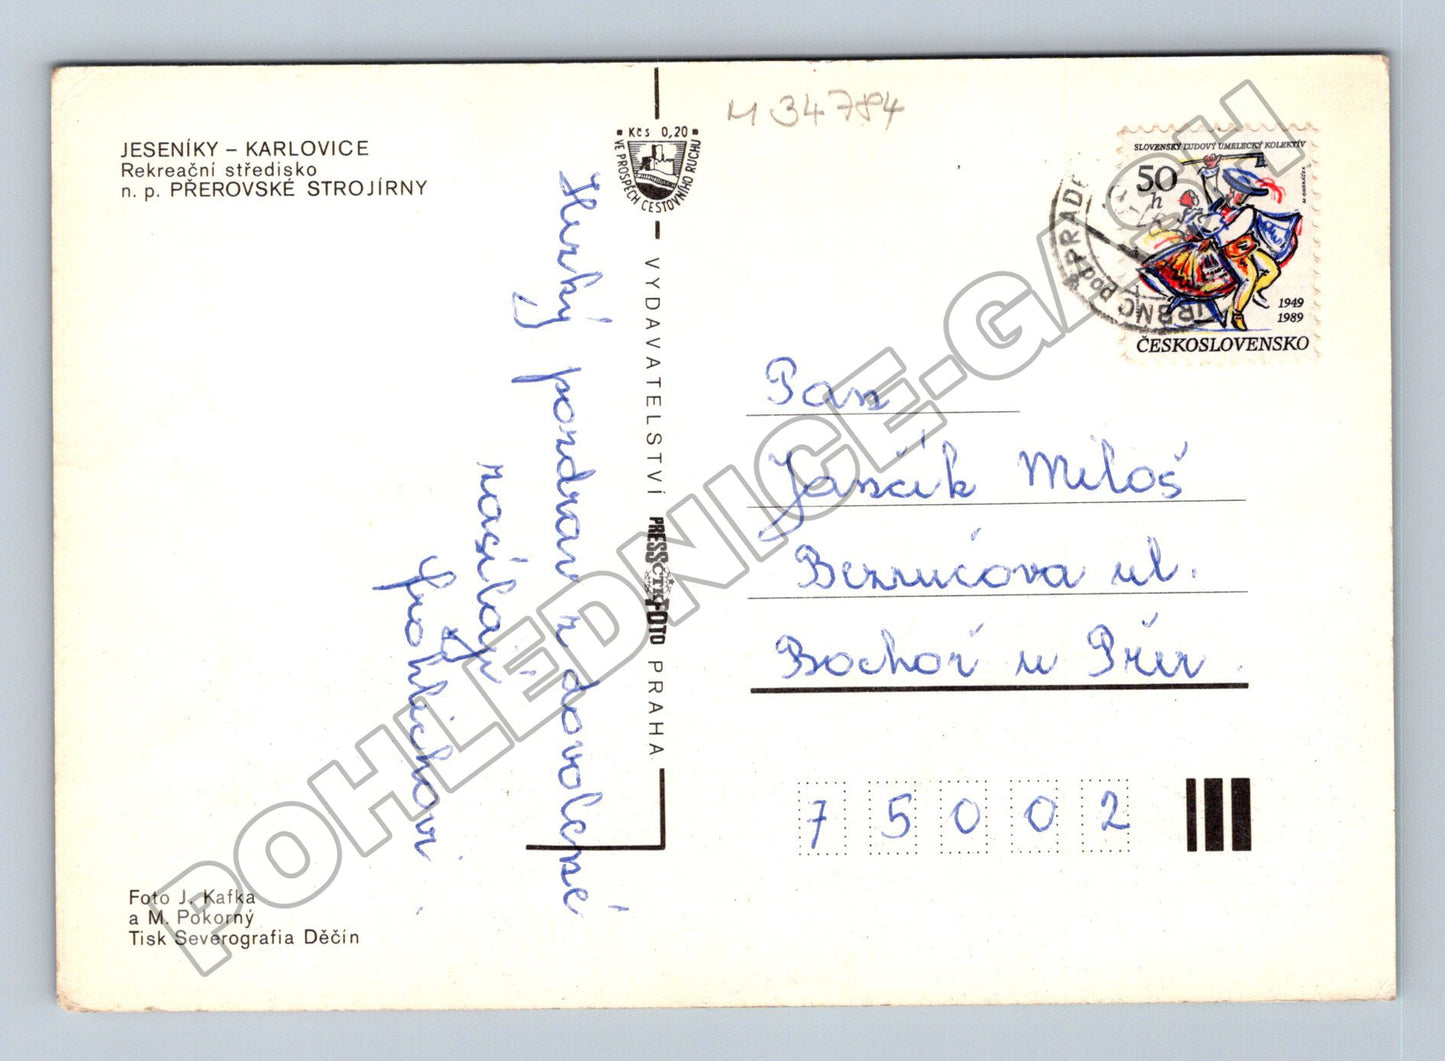 JESENÍKY – KARLOVICE
Rekreační středisko
n. p. PŘEROVSKÉ STROJÍRNY
Kčs 0,20
VE PROSPĚCH CESTOVNÍHO RUCHU
M 34784
SLOVENSKÝ ĽUDOVÝ UMELECKÝ KOLEKTÍV
50
h
1949
1989
ČESKOSLOVENSKO
VRBNO pod PRADĚ
Hezký pozdrav z dovolené
zasílají
Frohlichovi
VYDAVATELSTVÍ PRESSFOTO PRAHA
ČTK
Pan
Jančík Miloš
Bezručova ul.
Bochoř u Přer.
75002
Foto J. Kafka
a M. Pokorný
Tisk Severografia Děčín
POHLEDNICE-GASH